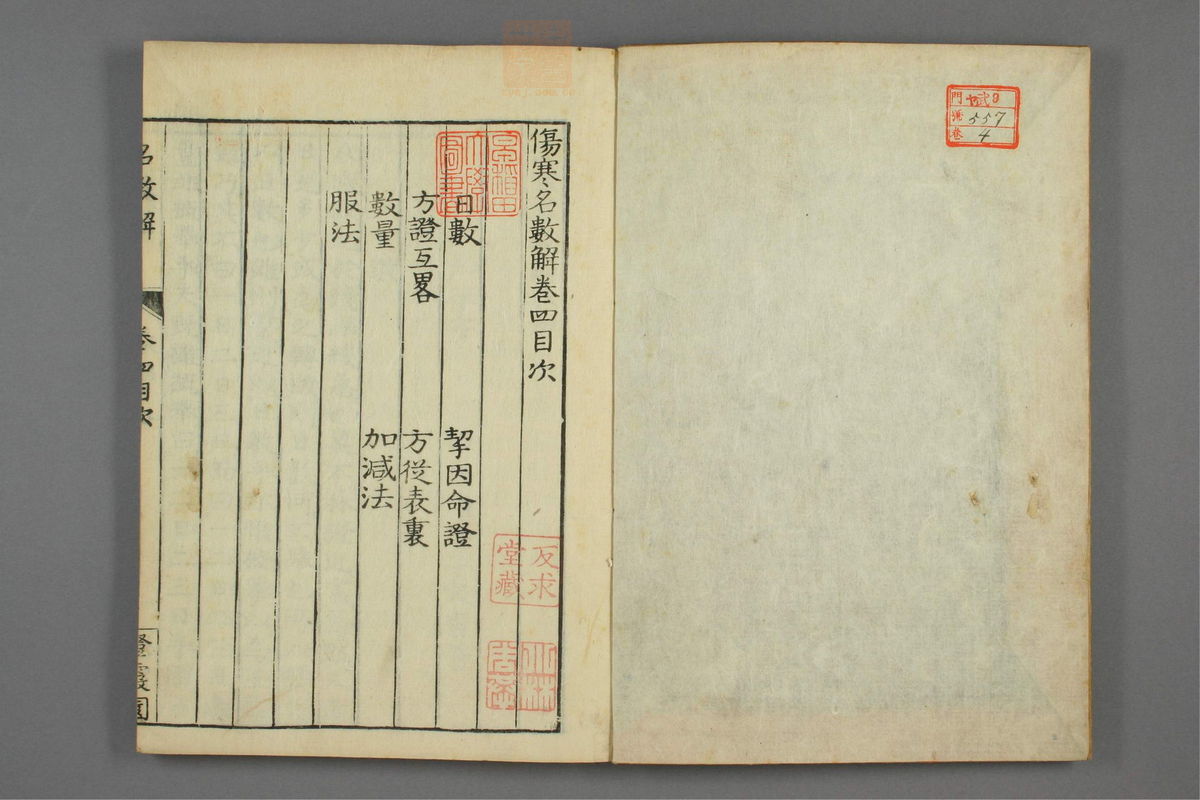 門 ヤ09
號 557
巻 4
傷寒名數解卷四目次
日數 挈因命證
方證互畧 方從表裏
數量 加減法
服法
反求堂藏
名數解 卷四目次